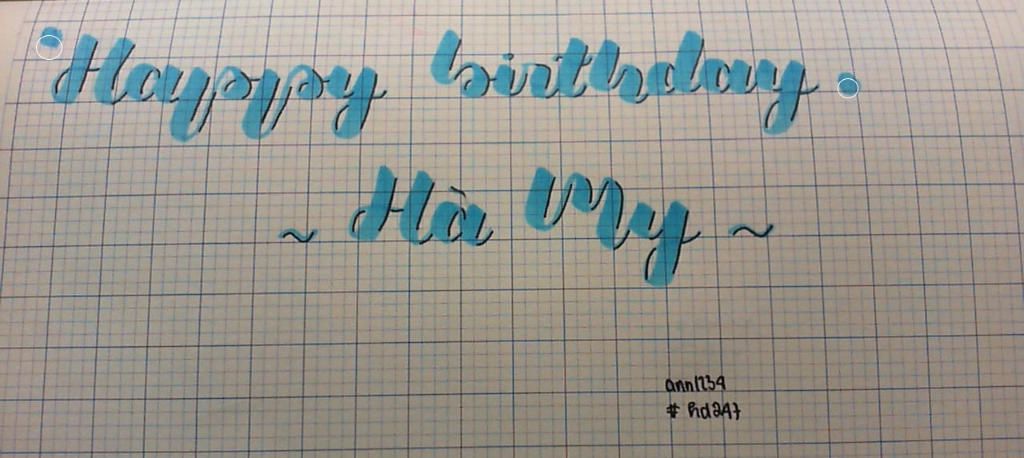 Happy birthday
~ Hà My ~
ann1234
# hd247